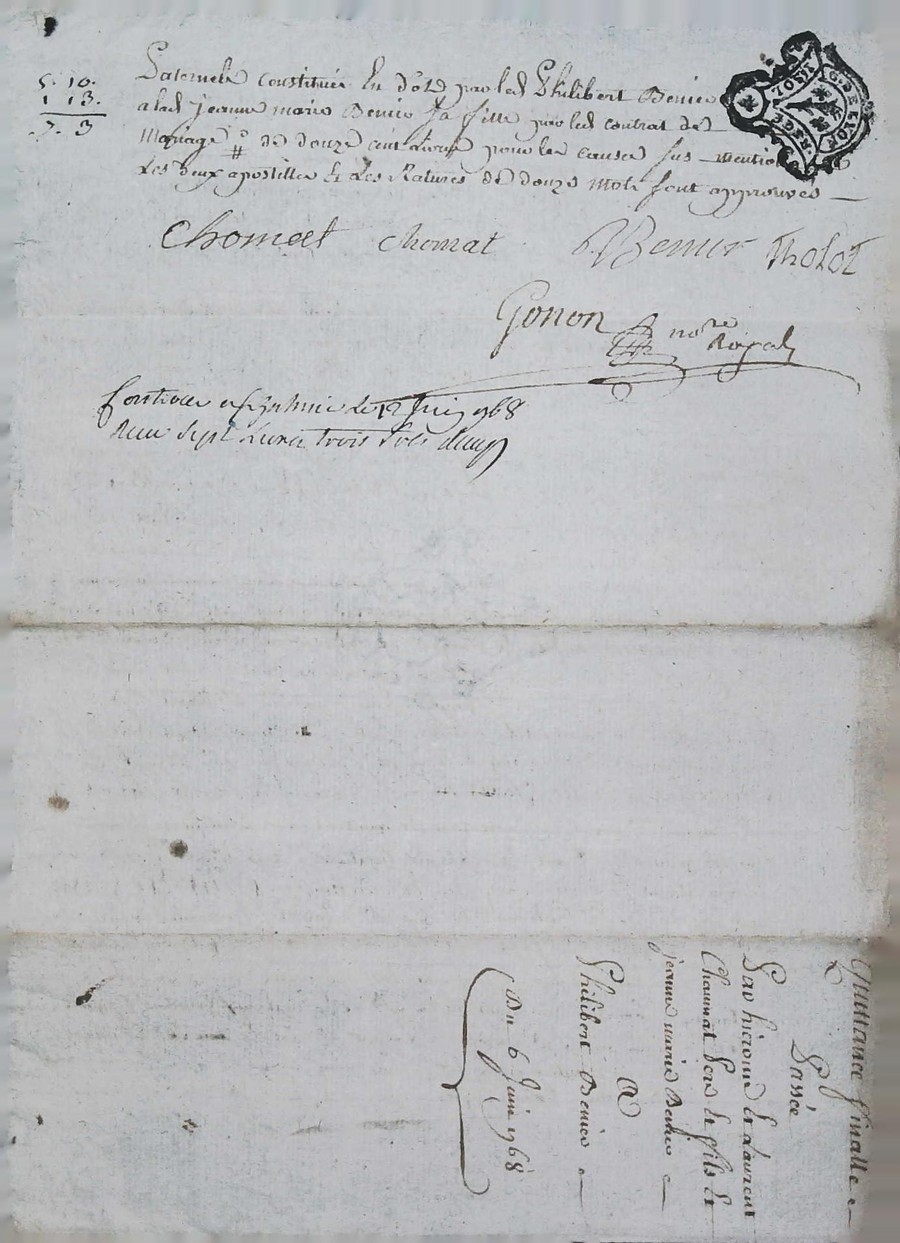 5. 10.
1 13.
7. 3
Paternels constitués En dote par led Philibert Benier
a lad jeanne marie Benier sa fille par led contrat de
Mariage de douze cent livres pour les causes sus mention
Les deux apostilles & Les Ratures de douze mots sont approuvés
Chomat chomat Benier Tholot
Gonon nore
Royal
le 12 juin 1768
Reçu sept Livres trois sols
Quittance finalle
Passée
Par hierome & Laurent
Chaumat Pere & fils &
jeanne marie Benier
a
Philibert Benier
Du 6 Juin 1768